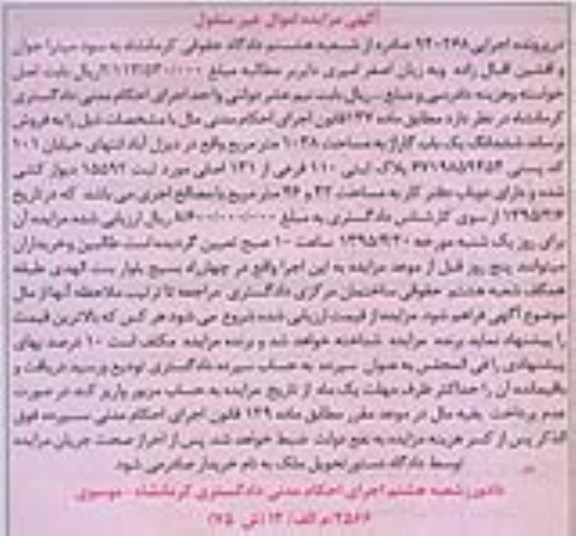 آگهی مزایده اموال غیر منقول
در پرونده اجرایی ۹۴۰۲۶۸ صادره از شعبه هشتم دادگاه حقوقی کرمانشاه به سود میترا
و افشین اقبال زاده و به زیان اصغر امیری دایر بر مطالبه مبلغ ریال بابت اصل
خواسته وهزینه دادرسی و مبلغ ریال بابت نیم عشر دولتی واحد اجرای احکام مدنی دادگستری
کرمانشاه در نظر دارد مطابق ماده ۱۳۷ قانون اجرای احکام مدنی مال با مشخصات ذیل را به فروش
برساند ششدانگ یک باب گاراژ به مساحت ۱۰۳۸ متر مربع واقع در دیزل آباد انتهای خیابان ۱۰۱
کد پستی پلاک ثبتی ۱۱۰ فرعی از ۱۳۱ اصلی مورد ثبت ۱۵۵۹۲ دیوار کشی
شده و دارای دفتر کار به مساحت ۳۲ و ۳۶ متر مربع با مصالح اجری می باشد که در تاریخ
از سوی کارشناس دادگستری به مبلغ ریال ارزیابی شده مزایده آن
برای روز یک شنبه مورخه ساعت ۱۰ صبح تعیین گردیده است طالبین وخریداران
میتوانند پنج روز قبل از موعد مزایده به این اجرا واقع در چهارراه بسیج بلوار بنت الهدی طبقه
همکف شعبه هشتم حقوقی ساختمان مرکزی دادگستری مراجعه تا ترتیب ملاحظه آنها از مال
موضوع آگهی فراهم شود. مزایده از قیمت ارزیابی شده شروع می شود هر کس که بالاترین قیمت
را پیشنهاد نماید برنده مزایده شناخته خواهد شد و برنده مزایده مکلف است ۱۰ درصد بهای
پیشنهادی را فی المجلس به عنوان سپرده به حساب سپرده دادگستری تودیع و رسید دریافت و
باقیمانده آن را حداکثر ظرف مهلت یک ماه از تاریخ مزایده به حساب مزبور واریز کند در صورت
عدم پرداخت بقیه مال در موعد مقرر مطابق ماده ۱۲۹ قانون اجرای احکام مدنی سپرده فوق
الذکر پس از کسر هزینه مزایده به نفع دولت ضبط خواهد شد پس از احراز صحت جریان مزایده
توسط دادگاه دستور تحویل ملک به نام خریدار صادر می شود
دادورز شعبه هشتم اجرای احکام مدنی دادگستری کرمانشاه - موسوی
۲۵۶۶/م الف/۱۲ (ش ۷۵)